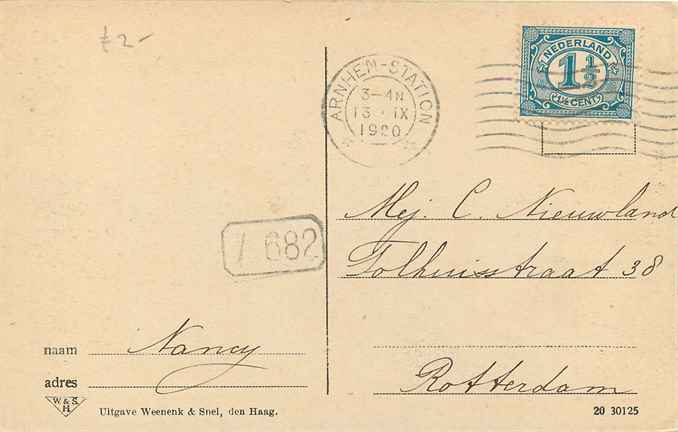 £ 2-
ARNHEM-STATION
3-4N
13 · IX
1920
NEDERLAND
1 1/2
1½ CENT
Mej. C. Nieuwland
Tolhuisstraat 38
682
naam Nancy
adres
Rotterdam
W & S
H
Uitgave Weenenk & Snel, den Haag.
20 30125